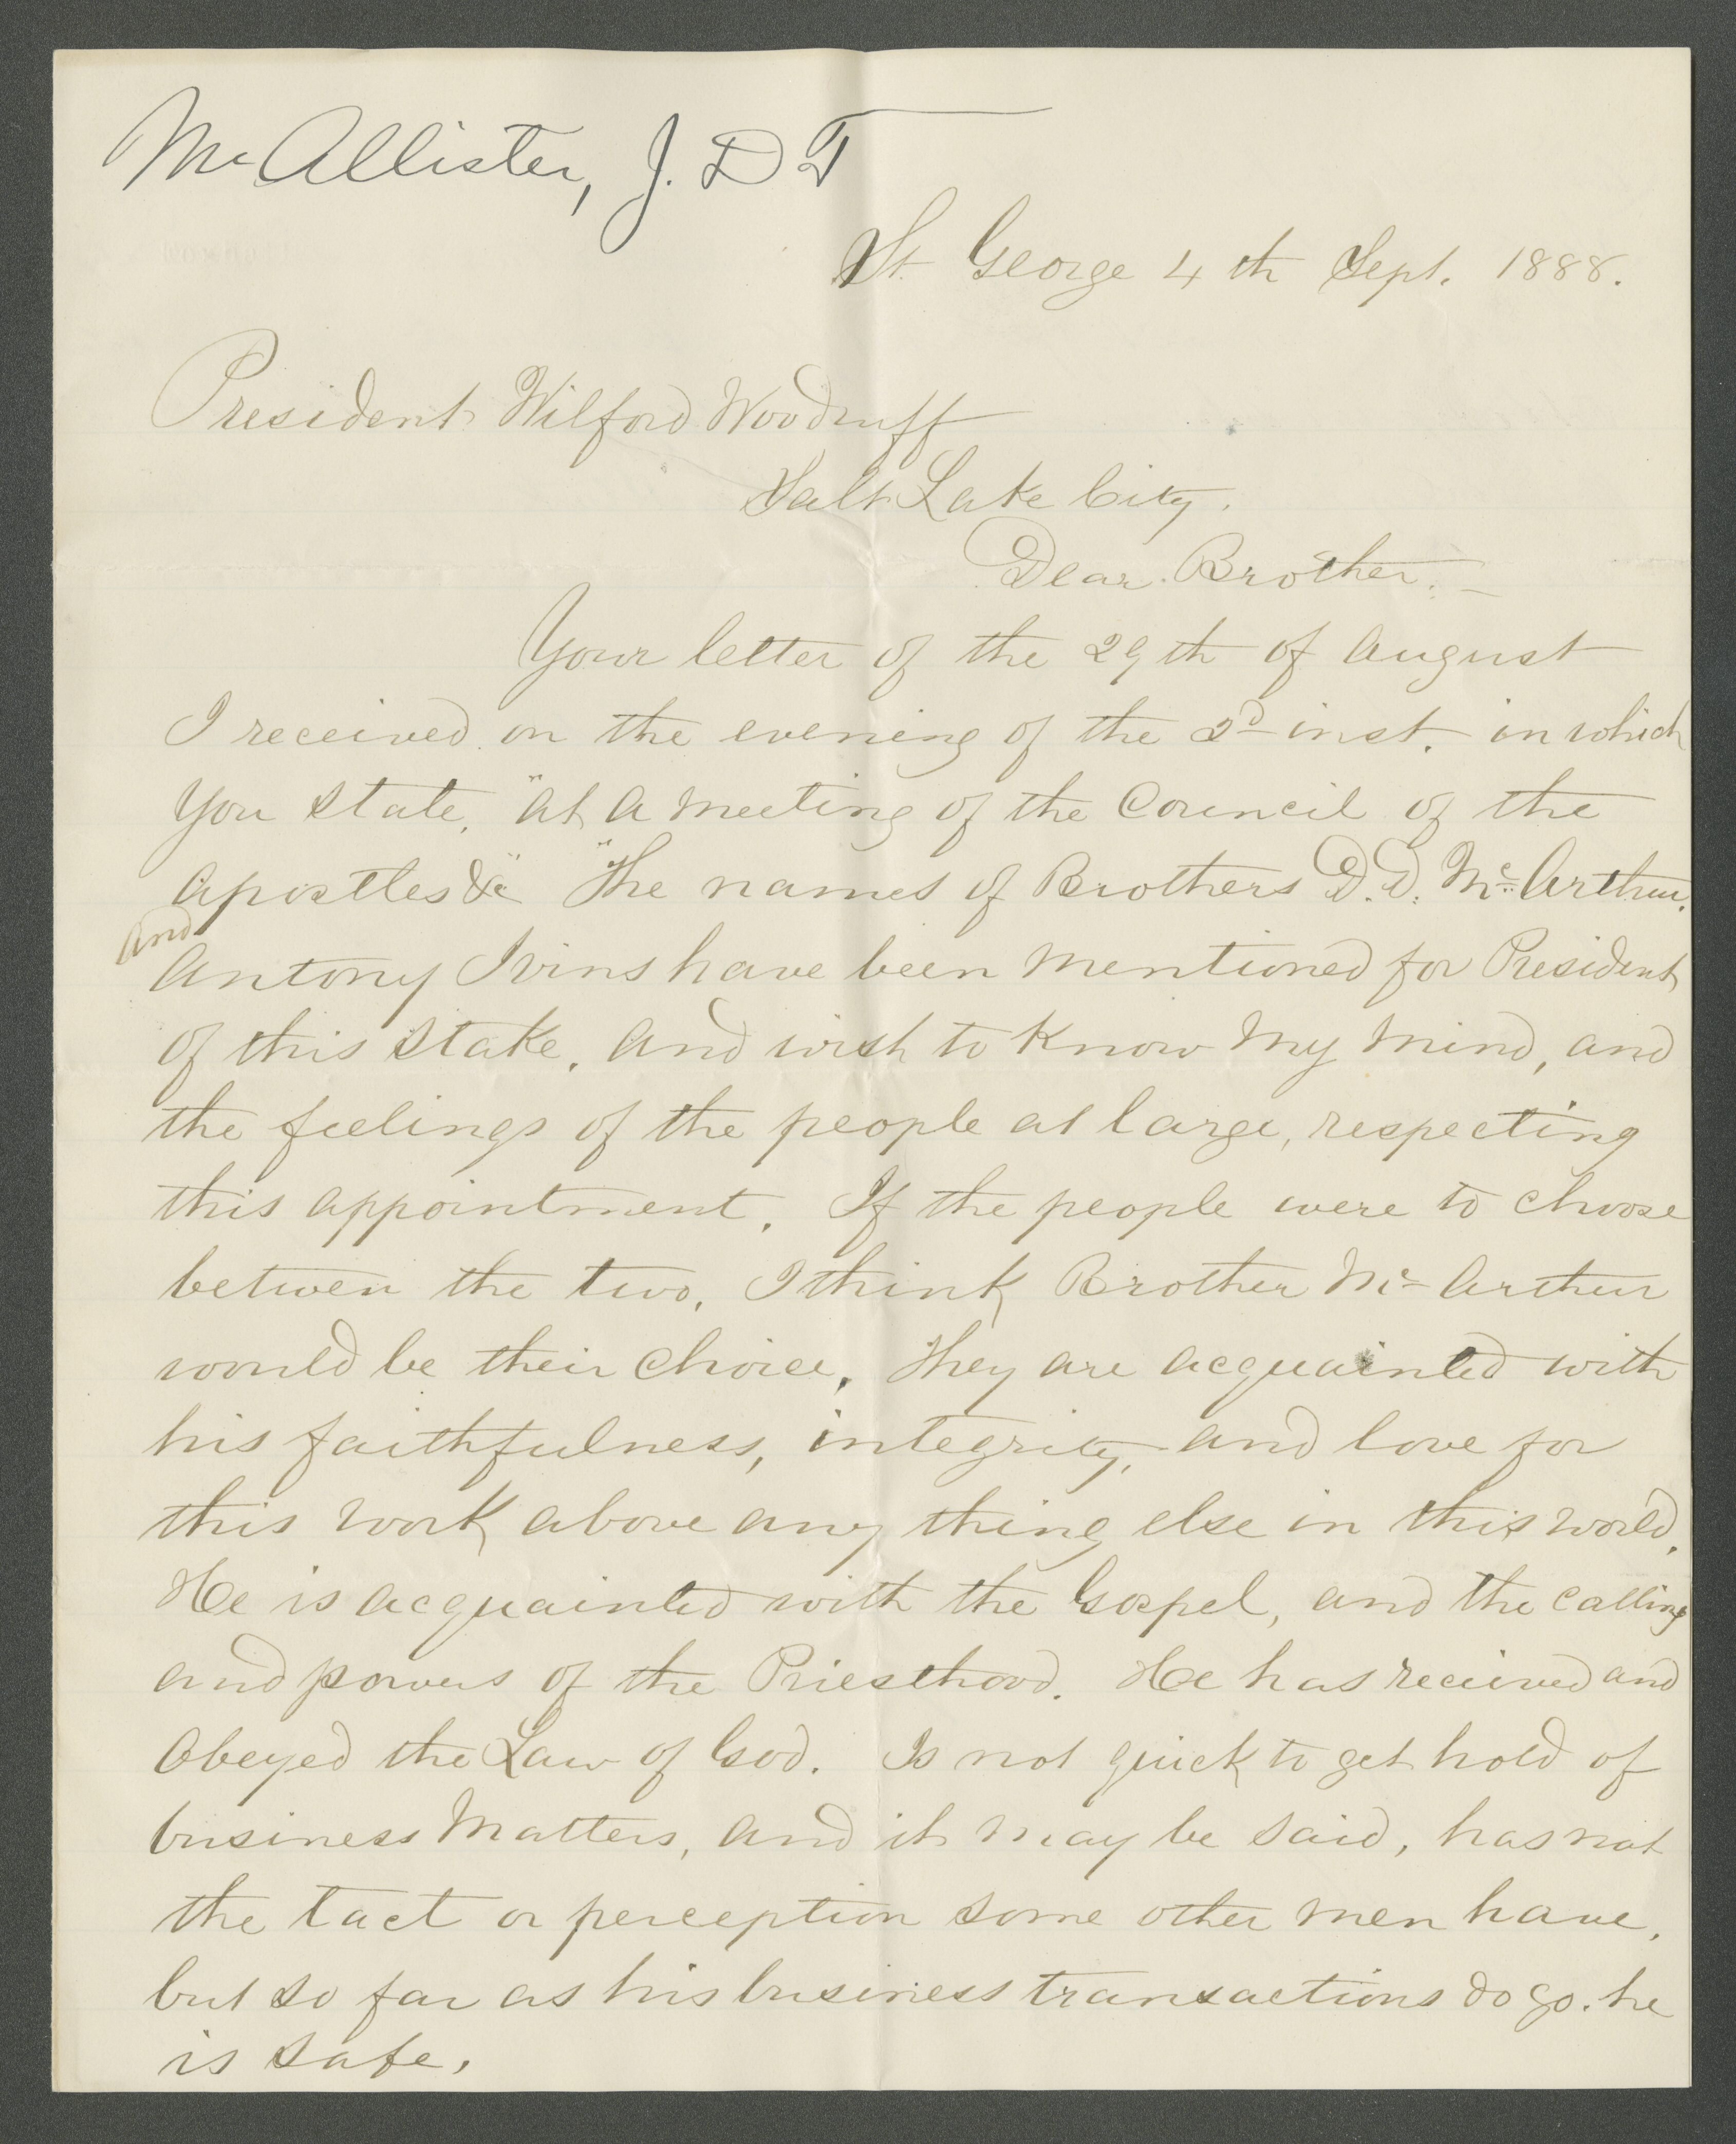 McAllister, J. D T
St. George 4th Sept. 1888.
President Wilford Woodruff
Salt Lake City.
Dear Brother. –
Your letter of the 29th of August
I received on the evening of the 2d inst. in which
you state, "at a meeting of the Council of the
Apostles &c" "The names of Brothers D. D. Mc Arthur.
and
Antony Ivins have been mentioned for President
of this Stake. and wish to know my mind, and
the feelings of the people at large, respecting
this appointment. If the people were to choose
between the two, I think Brother Mc Arthur
would be their choice. They are acquainted with
his faithfulness, integrity, and love for
this work above any thing else in this world.
He is acquainted with the Gospel, and the calling
and powers of the Priesthood. He has recieved and
obeyed the Law of God. Is not quick to get hold of
business matters, and it may be said, has not
the tact or perception some other men have,
but so far as his business transactions do go. he
is safe.